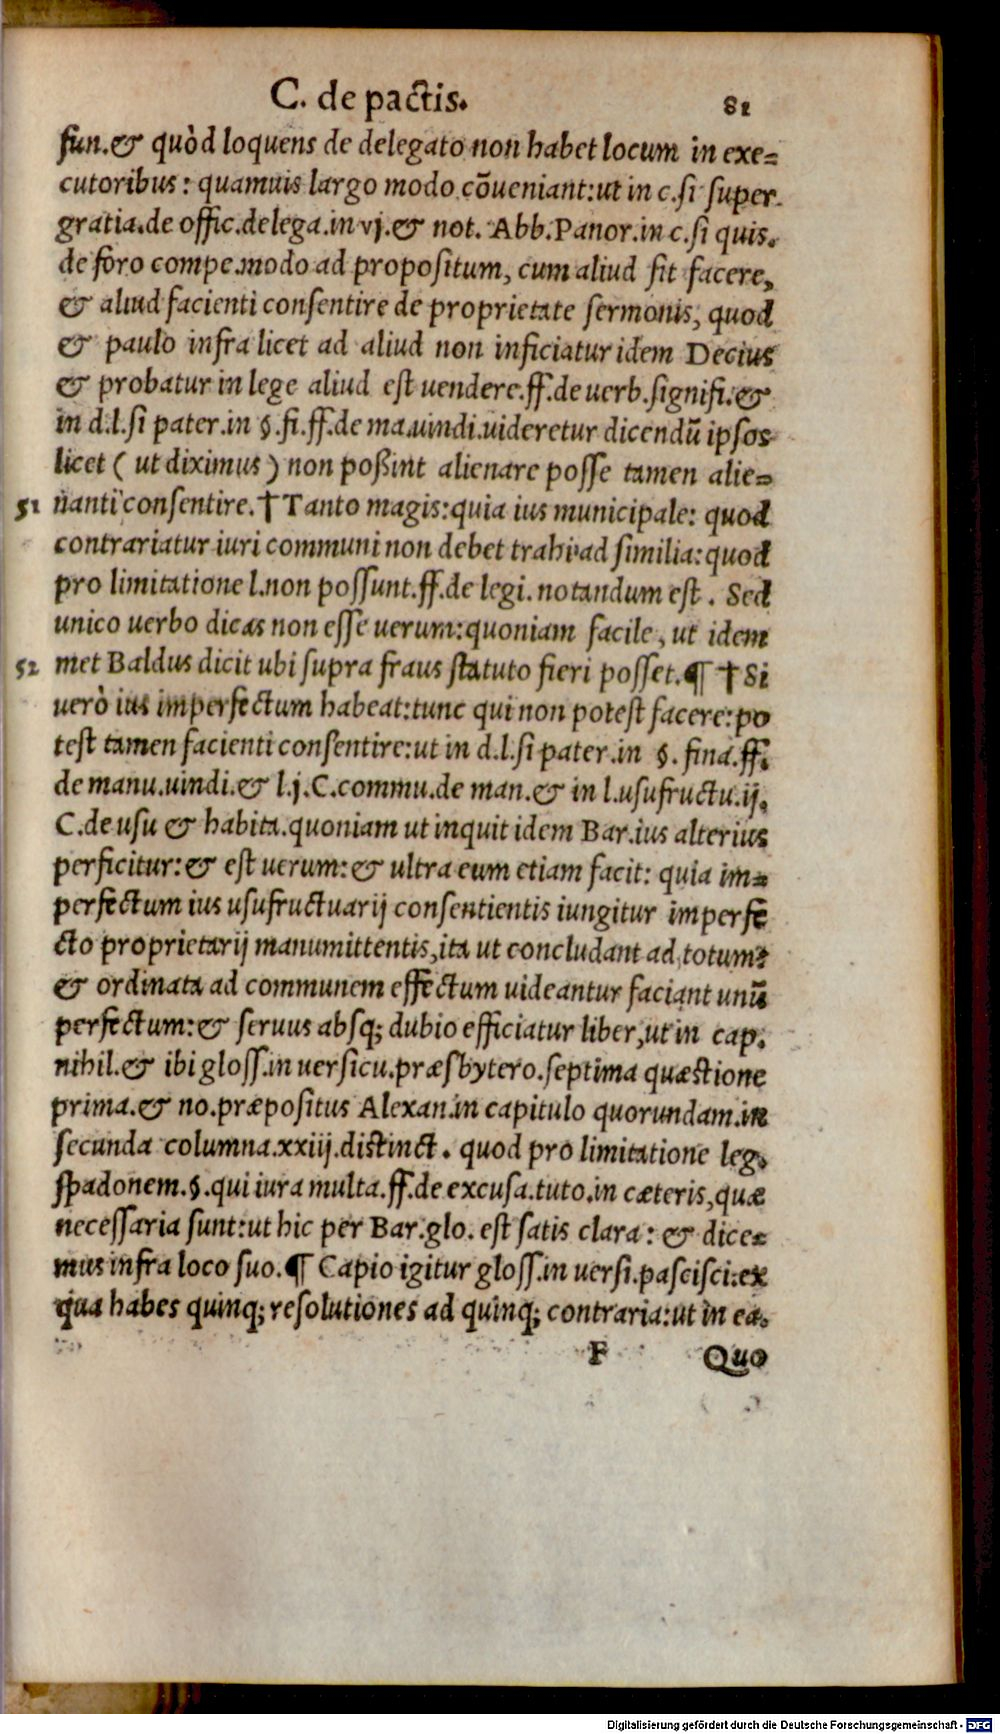 C. de pactis. 81
fun.& quòd loquens de delegato non habet locum in exe=
cutoribus: quamuis largo modo cōueniant:ut in c.si super
gratia.de offic.delega.in vj.& not. Abb.Panor.in c.si quis.
de foro compe.modo ad propositum, cum aliud sit facere,
& aliud facienti consentire de proprietate sermonis, quod
& paulo infra licet ad aliud non inficiatur idem Decius
& probatur in lege aliud est vendere.ff.de uerb.signifi.&
in d.l.si pater.in §.fi.ff.de ma.uindi.uideretur dicendū ipsos
licet ( ut diximus ) non poßint alienare posse tamen alie=
51 nanti consentire.†Tanto magis:quia ius municipale: quod
contrariatur iuri communi non debet trahi ad similia:quod
pro limitatione l.non possunt.ff.de legi.notandum est. Sed
unico uerbo dicas non esse uerum:quoniam facile, ut idem
52 met Baldus dicit ubi supra fraus statuto fieri posset.¶ †Si
uerò ius imperfectum habeat:tunc qui non potest facere:po
test tamen facienti consentire:ut in d.l.si pater.in §. fina.ff.
de manu.uindi.& l.j.C.commu.de man.& in l.usufructu.ij.
C.de usu & habita.quoniam ut inquit idem Bar.ius alterius
perficitur:& est uerum:& ultra eum etiam facit: quia im=
perfectum ius usufructuarij consentientis iungitur imperfe
cto proprietarij manumittentis,ita ut concludant ad totum:
& ordinata ad communem effectum uideantur faciant unū
perfectum:& seruus absq; dubio efficiatur liber,ut in cap.
nihil.& ibi gloss.in uersicu.præsbytero.septima quæstione
prima.& no.præpositus Alexan.in capitulo quorundam.in
secunda columna.xxiij.distinct. quod pro limitatione leg.
spadonem.§.qui iura multa.ff.de excusa.tuto.in cæteris,quæ
necessaria sunt:ut hic per Bar.glo. est satis clara: & dice=
mus infra loco suo.¶ Capio igitur gloss.in uersi.pascisci:ex
qua habes quinq; resolutiones ad quinq; contraria:ut in ea.
F Quo
Digitalisierung gefördert durch die Deutsche Forschungsgemeinschaft - DFG